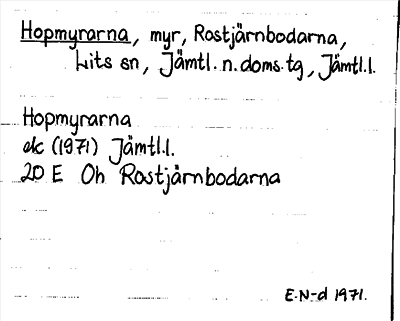 Hopmyrarna, myr, Rostjärnbodarna,
Lits sn, Jämtl. n. doms. tg, Jämtl.l.
Hopmyrarna
ek (1971) Jämtl.l.
20 E Oh Rostjärnbodarna
E.N-d 1971.